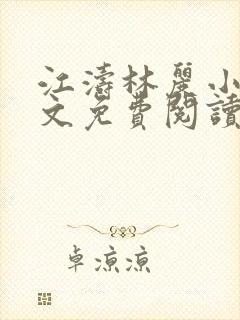 江濤林麗小
文免費閱讀
卓涼涼